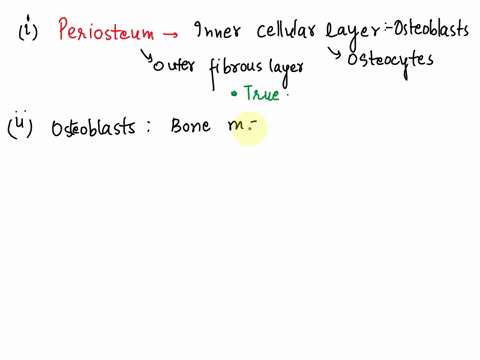 (i) Periosteum → Inner cellular layer:- Osteoblasts
↘ outer fibrous layer ↘ Osteocytes
• True.
(ii) Osteoblasts : Bone m